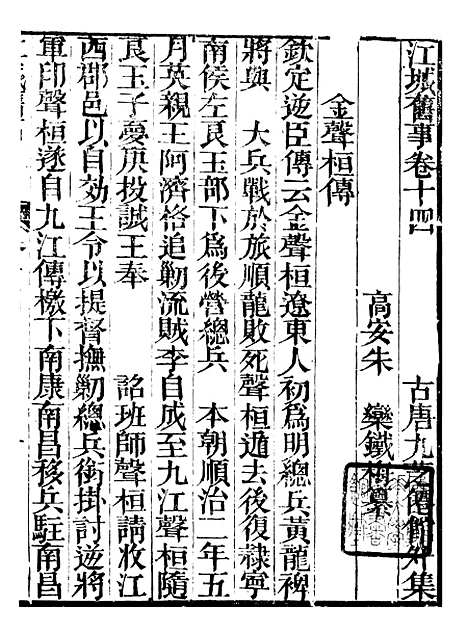 江城舊事卷十四
古唐九芝僊館外集
高安朱　欒鐵梅纂
金聲桓傳
欽定逆臣傳云金聲桓遼東人初爲明總兵黃龍裨
將與　大兵戰於旅順龍敗死聲桓遁去後復隸寧
南侯左良玉部下爲後營總兵　本朝順治二年五
月英親王阿濟格追勦流賊李自成至九江聲桓隨
良玉子夢庚投誠王奉　詔班師聲桓請收江
西郡邑以自効王令以提督撫勦總兵銜掛討逆將
軍印聲桓遂自九江傳檄下南康南昌移兵駐南昌